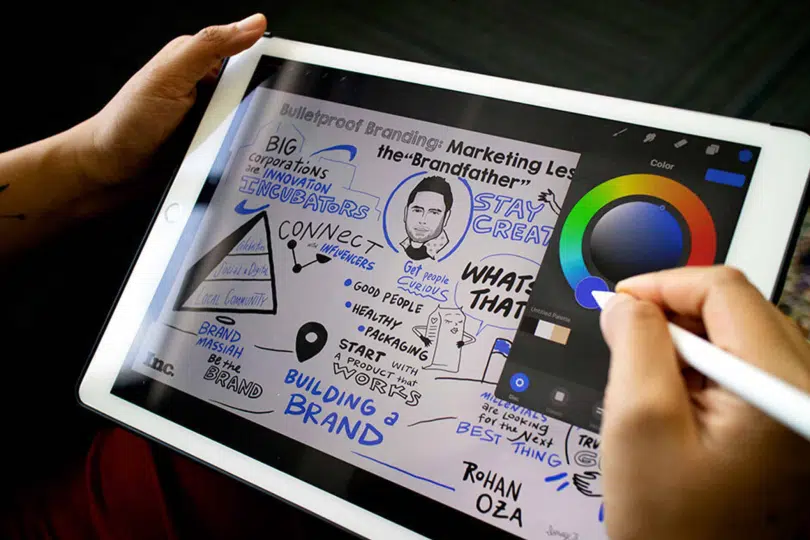 Bulletproof Branding: Marketing Les
the "Brandfather"
BIG
corporations
are INNOVATION
INCUBATORS
STAY
CREAT
CONNECT
with INFLUENCERS
Get people
CURIOUS
WHATS
THAT
Social & Digital
LOCAL COMMUNITY
GOOD PEOPLE
HEALTHY
PACKAGING
BRAND
MASSIAH
Be the
BRAND
START WITH
a PRODUCT that
WORKS
BUILDING a
BRAND
Inc.
MILLENIALS
are LOOKING
for the Next
BEST THING
TRU
ROHAN
OZA
Color
Untitled Palette
Disc